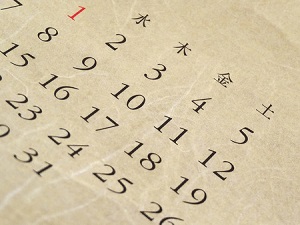 水 木 金 土
1 2 3 4 5
7 8 9 10 11 12
15 16 17 18 19
23 24 25 26
31